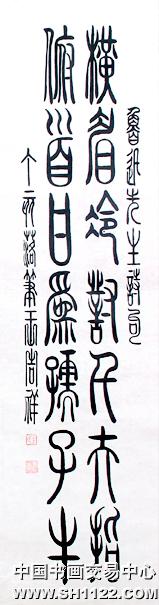 魯迅先生詩句
橫眉冷對千夫指
俯首甘為孺子牛
丁亥落筆王周祥
中国书画交易中心
www.SH1122.com